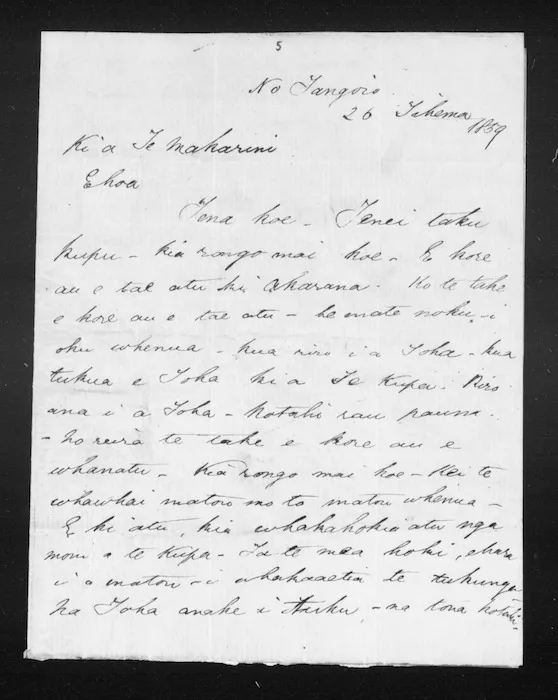 5
No Tangoio
26 Tihema
1859
Ki a Te Makarini
E hoa
Tena koe - Tenei taku
kupu - kia rongo mai koe - E kore
au e tae atu ki Akarana. Ko te take
e kore au e tae atu - he mate noku - i
oku whenua - kua riro i a Toha - kua
tukua e Toha ki a Te Kupa. Riro
ana i a Toha - kotahi rau pauna.
- No reira te take e kore au e
whanatu - Kia rongo mai koe - Kei te
whawhai matou mo to matou whenua -
E ki atu, kia whakahokia atu nga
moni a te Kupa - Ta te mea hoki, ehara
i a matou - i whakaaetia te tukunga
Na Toha anake i tuku - na tona kotahi -